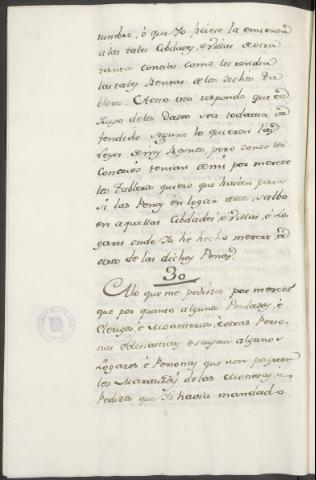 tumbre, ó que Yo ficiese la emienda
a las tales Cibdades, é Villas de otra
tanta contia como les rendia
las tales Rentas de los dichos Ta
bleros. A esto vos respondo que el
Juego de los Dados sea todavia de
fendido segunt lo quieren las
Leyes de mis Regnos, pero donde los
Concejos tenian de mi por merced
los Tableros quiero que hayan para
si las Penas en logar dello, salbo
en aquellas Cibdades é Villas, é Lo
gares onde Yo he fecho merced de
otro de las dichas Penas.
30
A lo que me pedistes por merced
que por quanto algunos Perlados, é
Clerigos, é Monesterios, é otras Perso-
nas Eclesiasticas escusan algunos
Logares é Personas que non paguen
los Maravedis de las Monedas, é
Pedidos que Yo havia mandado